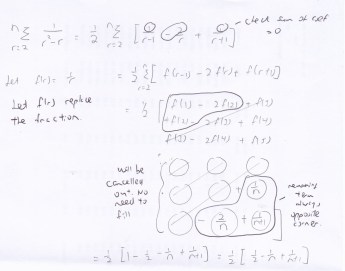 n∑r=2 1/(r³-r) = 1/2 n∑r=2 [1/(r-1) - 2/r + 1/(r+1)] - check sum of coef = 0
Let f(r) = 1/r = 1/2 n∑r=2 [f(r-1) - 2f(r) + f(r+1)]
Let f(r) replace the fraction.
= 1/2 [f(1) - 2f(2) + f(3)
+ f(2) - 2f(3) + f(4)
f(3) - 2f(4) + f(5)
will be
cancelled
out. No
need to
fill
+ 1/n
- 2/n + 1/(n+1)
remaining
term
always
opposite
corner.
= 1/2 [1 - 1/2 - 1/n + 1/(n+1)] = 1/2 [1/2 - 1/n + 1/(n+1)]